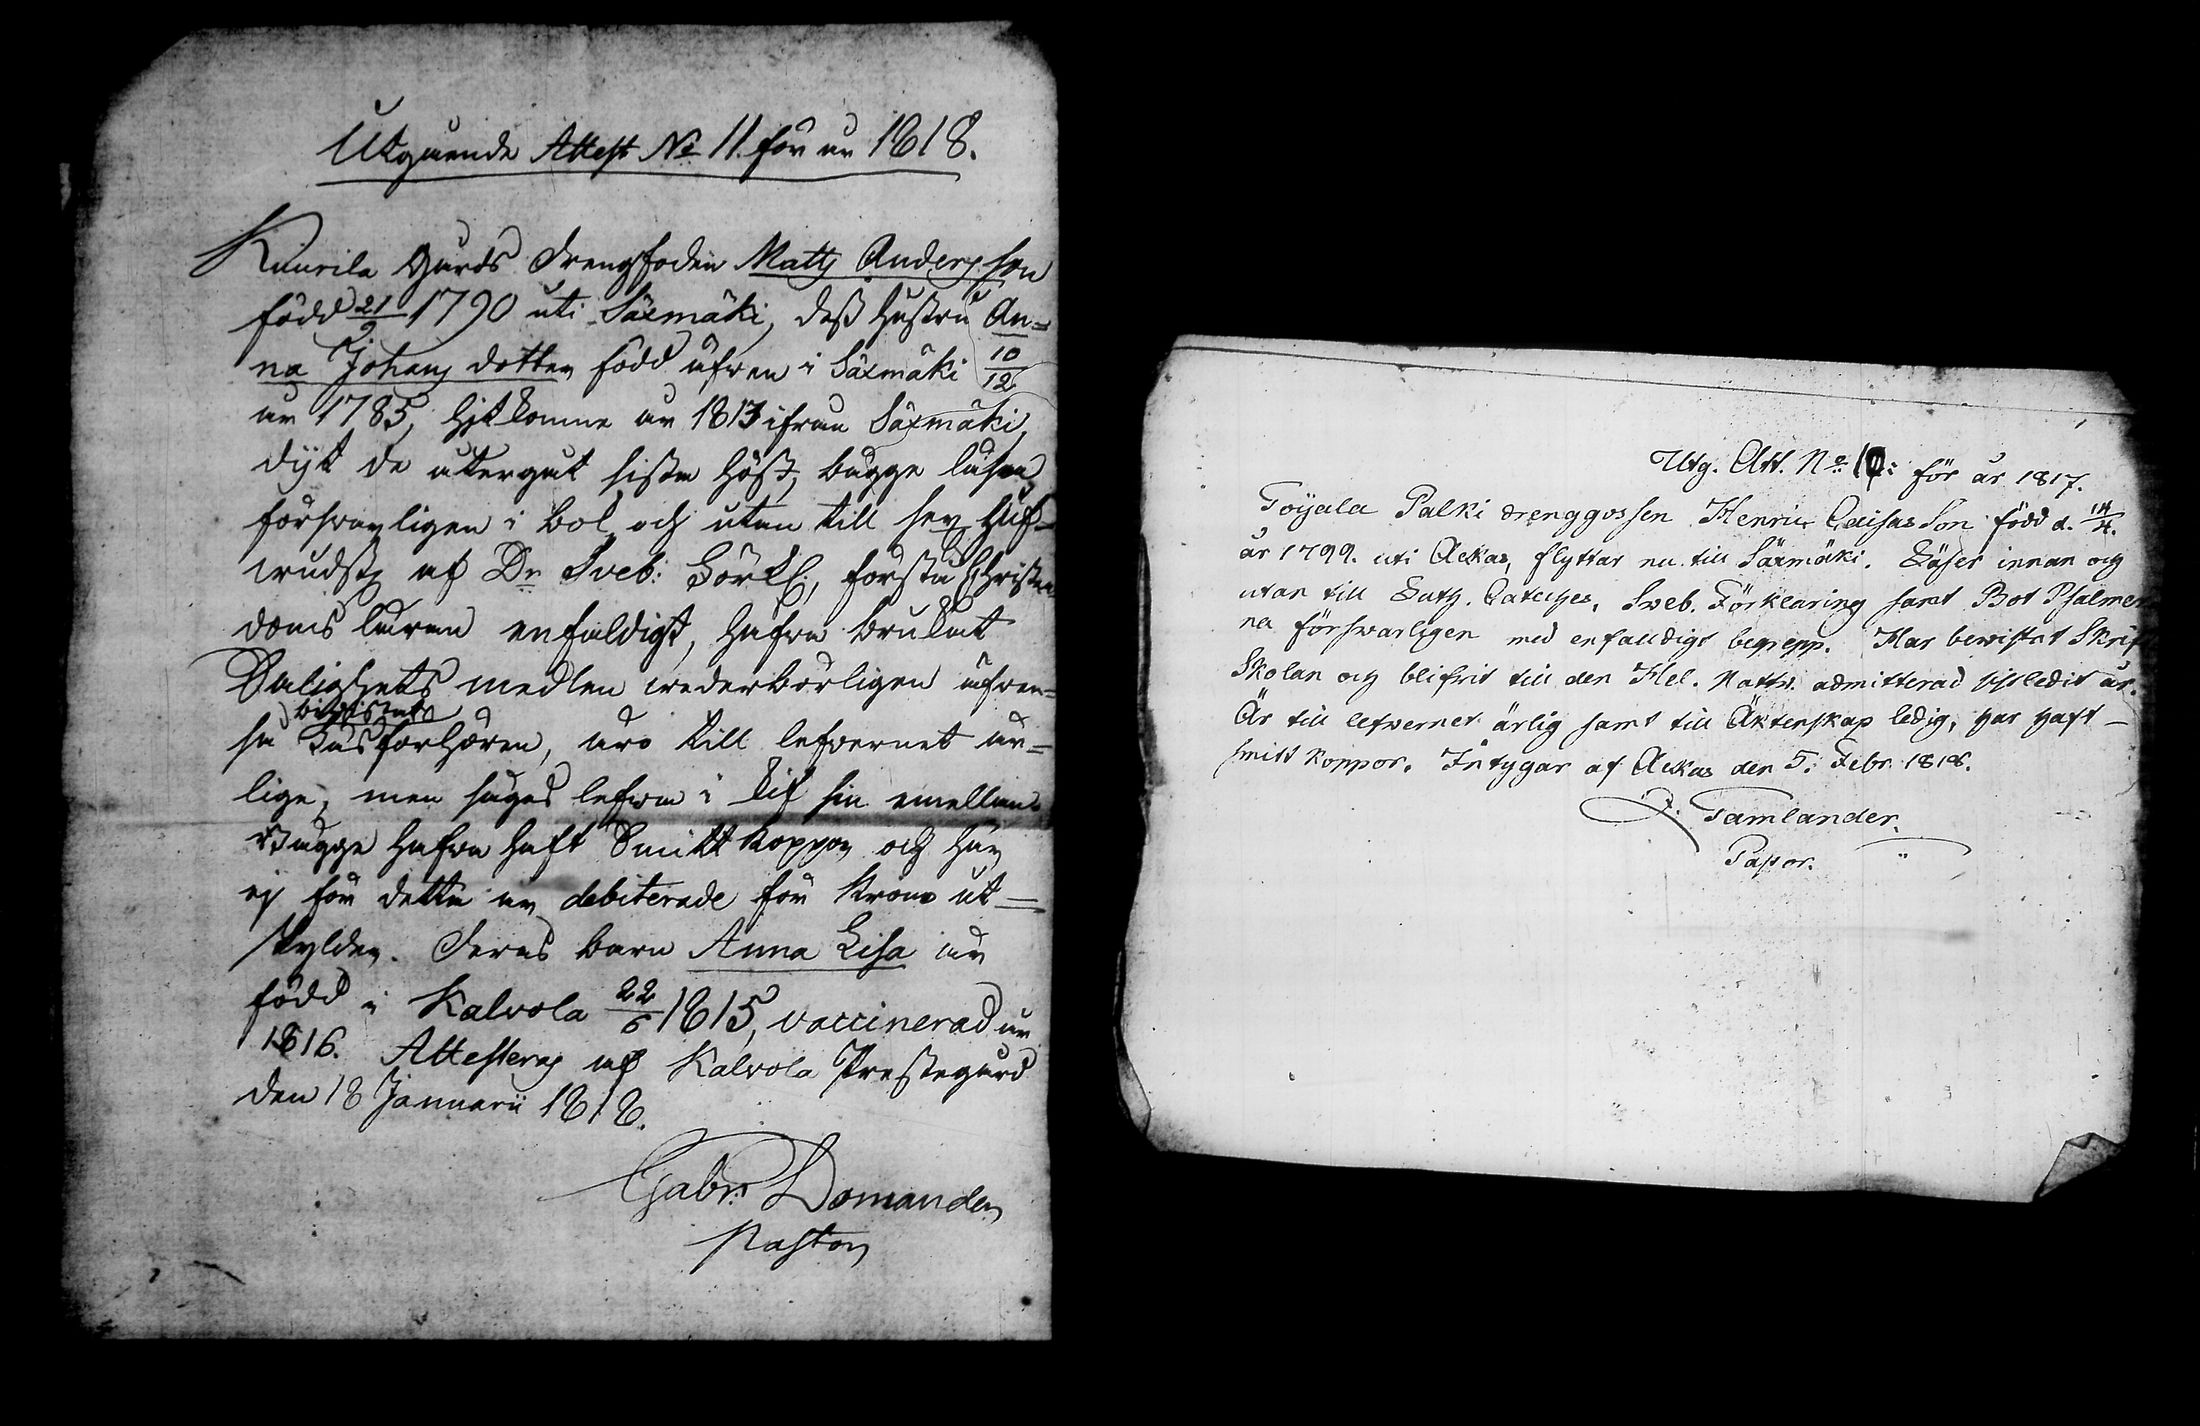 Utgående Attest No 11. för år 1818.
Kuurila Gårds Drengfoden Matts Anders son
född 21/9 1790 uti Säxmäki, dess hustru An=
na Johans dotter född äfven i Säxmäki 10/12
år 1785, hitkomne år 1813 ifrån Säxmäki,
dijt de återgåt sista höst, bägge läsa
försvarligen i bok och utan till
af Dr Sveb: Förkl:, förstå Christen
doms läran enfaldigt, hafva brukat
Salighets medlen wederbörligen äfven=
bevistat
så Läsförhören, äro till lefvernet är=
lige, men sägas lefva i kif sin emellan.
Bägge hafva haft Smitt koppor och här
ej för detta år debiterade för Krono ut=
skylder. Deras barn Anna Lisa är
född i Kalvola 22/6 1815, vaccinerad år
1816. Attesteras af Kalvola Prestegård
den 18 Januarii 1818.
Gabr. Domander
Pastor
Utg. Att. No 10: för år 1817.
Toijala Palki drenggossen Henric Caisas Son född d. 14/4.
år 1799. uti Ackas, flyttar nu till Säxmäki. Läser innan och
utan till Luth. Cateches, Sveb. Förklaring samt Bot Psalmer
na försvarligen med enfalldigt begrepp. Har bevistat Skrift
Skolan och blifvit till den Hel. Nattv. admitterad sistledit år.
Är till lefvernet ärlig samt till Äktenskap ledig, har haft
smitt koppor. Intygar af Ackas den 5. Febr. 1818.
J. Tamlander.
Pastor.